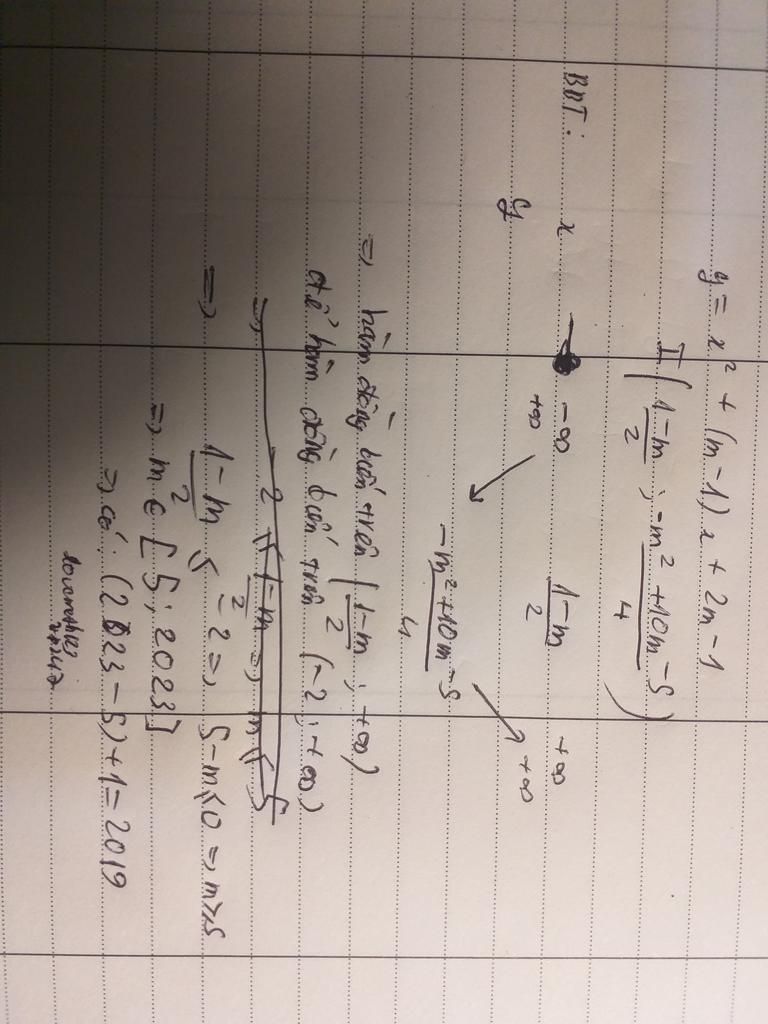 y = x² + (m-1)x + 2m-1
I ( (1-m)/2 ; (-m²+10m-5)/4 )
BBT: x -∞ (1-m)/2 +∞
y +∞ (-m²+10m-5)/4 +∞
=> hàm đồng biến trên ( (1-m)/2 ; +∞)
để hàm đồng biến trên (-2 ; +∞)
=> -2 ≤ (1-m)/2 => m ≤ 5
=> (1-m)/2 ≤ -2 => 5-m ≤ 0 => m ≥ 5
=> m ∈ [5 ; 2023]
=> có: (2023-5)+1 = 2019